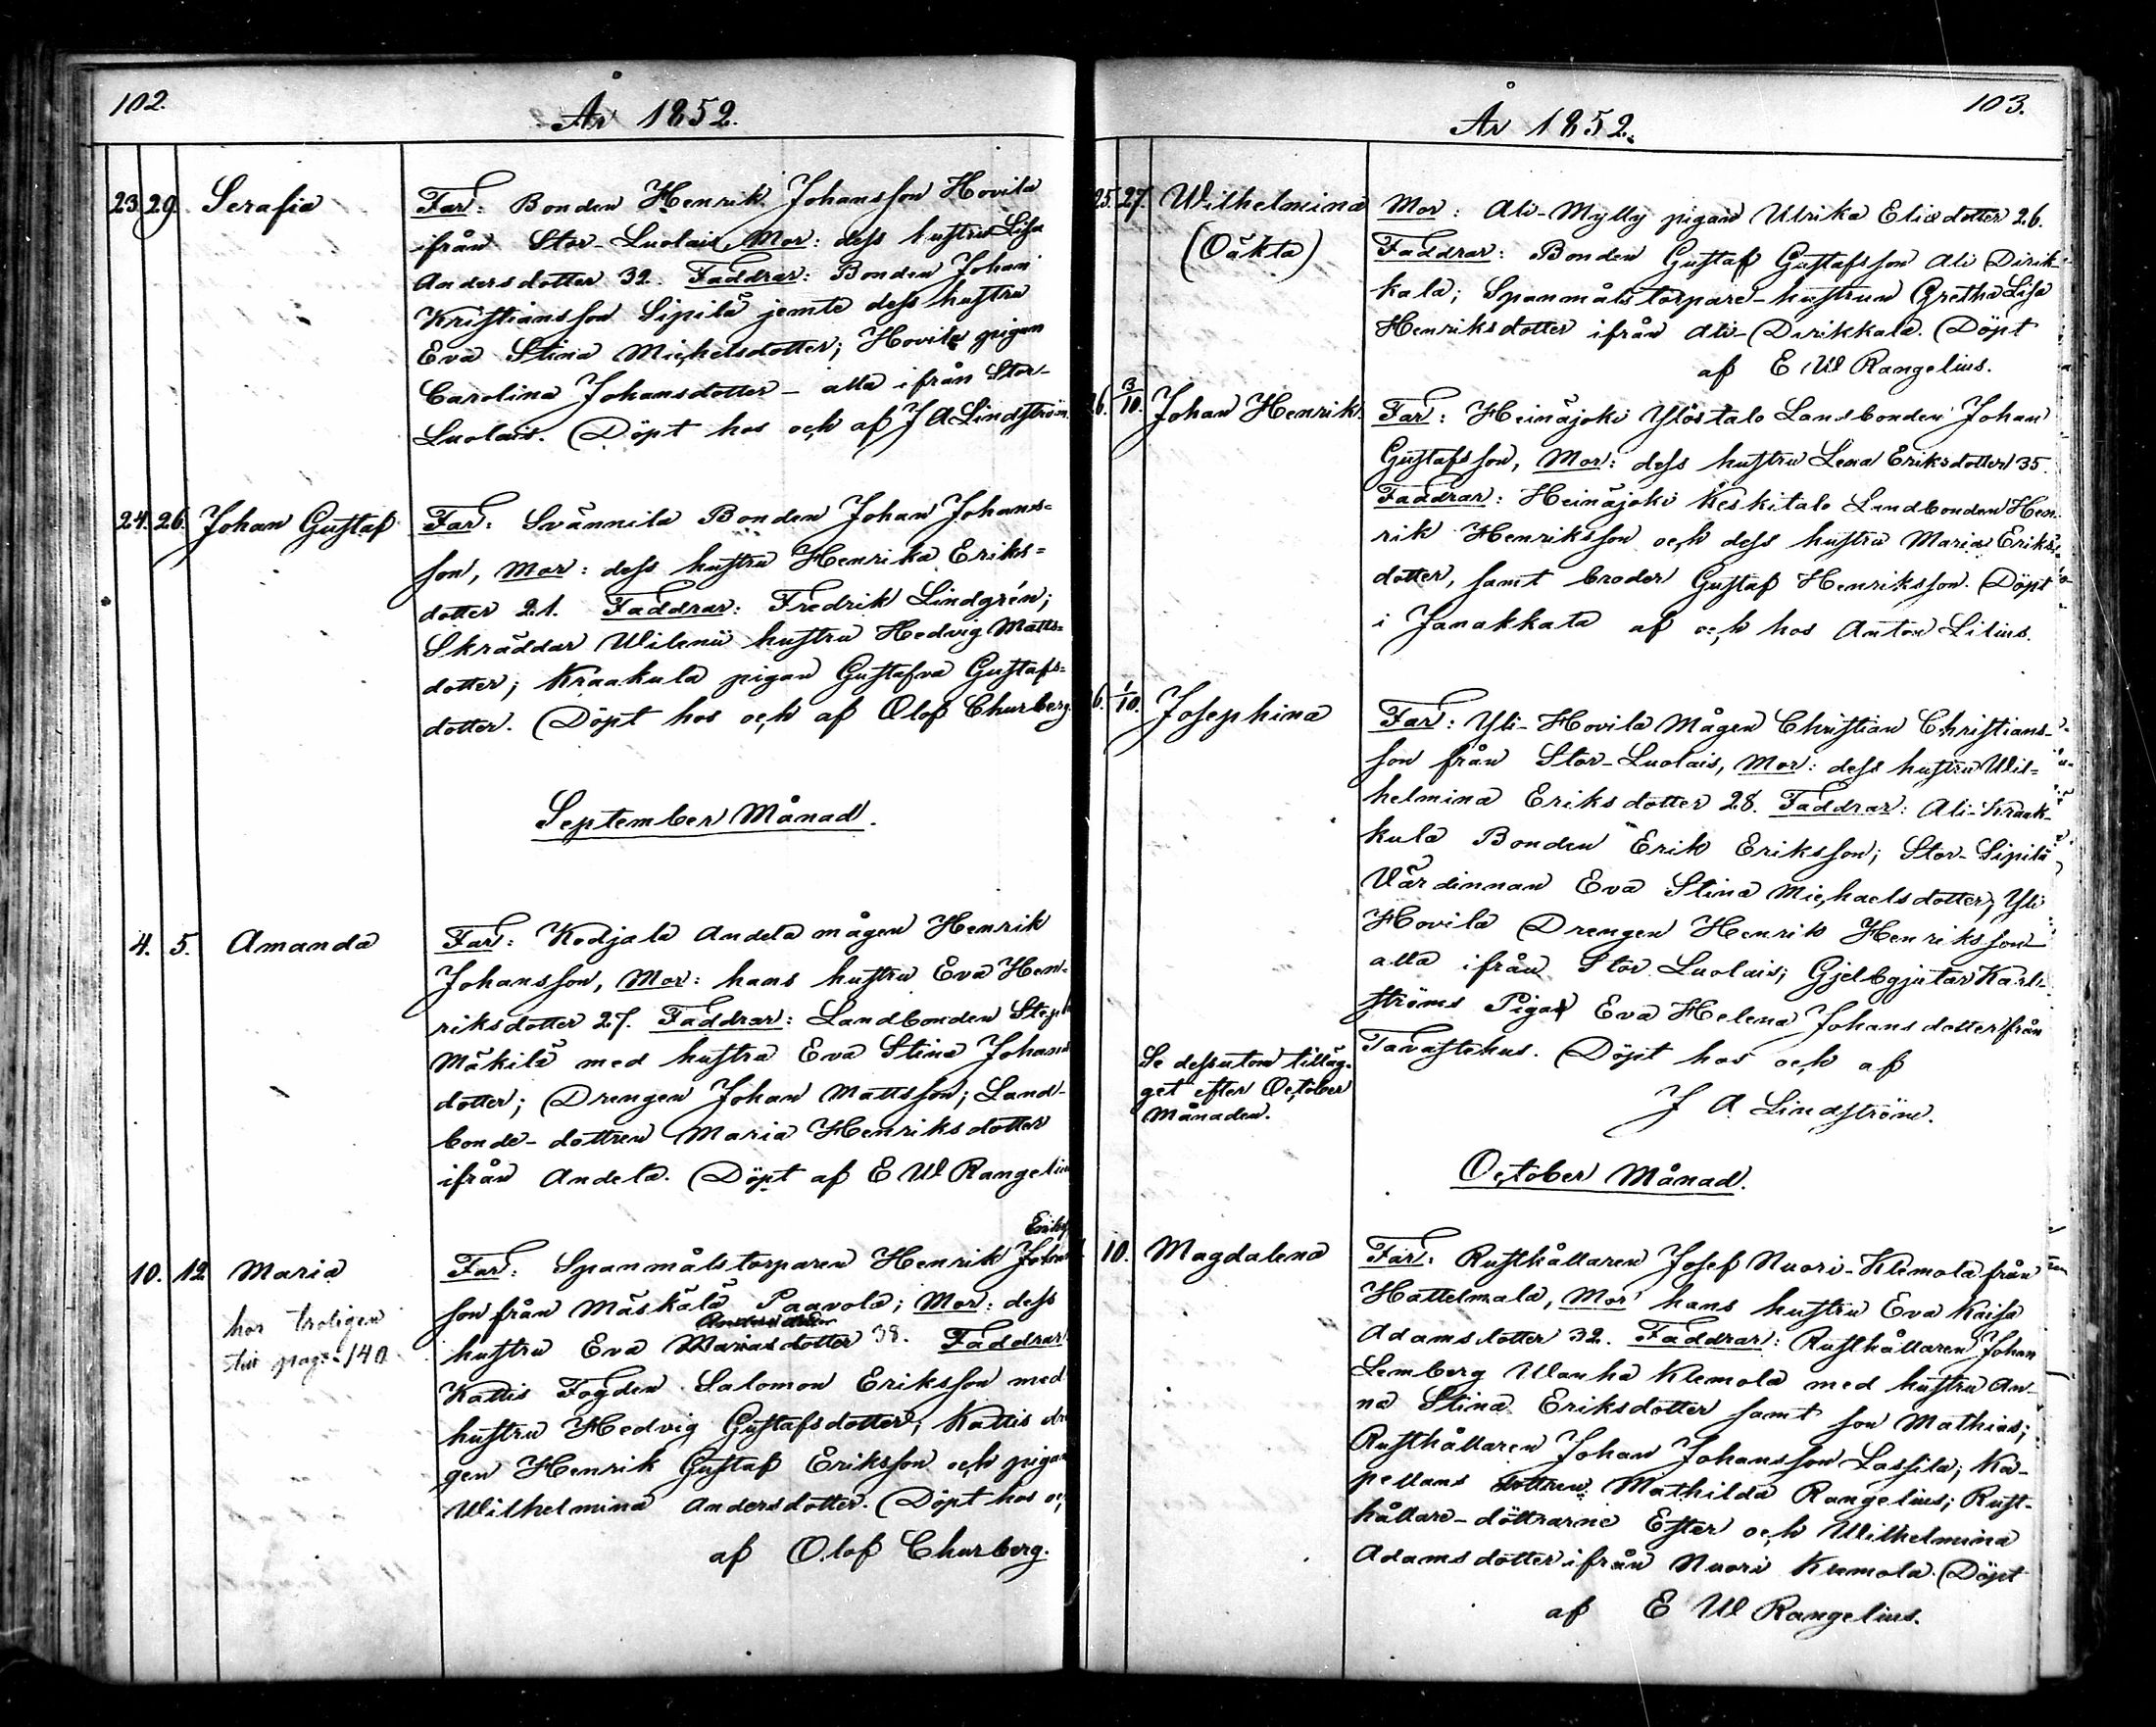 102.
År 1852.
23. 29. Serafia
Far: Bonden Henrik Johansson Hovila
ifrån Stor-Luolais, Mor: dess hustru Lisa
Andersdotter 32. Faddrar: Bonden Johan
Kristiansson Sipilä jemte dess hustru
Eva Stina Michelsdotter; Hovila pigan
Carolina Johansdotter - alla ifrån Stor-
Luolais. Döpt hos och af J A Lindström.
24. 26. Johan Gustaf
Far: Svännila Bonden Johan Johans=
son, Mor: dess hustru Henrika Eriks=
dotter 21. Faddrar: Fredrik Lindgrén;
Skräddar Wilenii hustru Hedvig Matts=
dotter; Kraakula pigan Gustafva Gustafs=
dotter. Döpt hos och af Olof Churberg.
September Månad.
4. 5. Amanda
Far: Kodjala Andela mågen Henrik
Johansson, Mor: hans hustru Eva Hen-
riksdotter 27. Faddrar: Landbonden Steph
Mäkilä med hustru Eva Stina Johans
dotter; Drengen Johan Mattsson; Land-
bonde-dottren Maria Henriksdotter
ifrån Andela. Döpt af E W Rangelius
10. 12. Maria
hör troligen
till pag. 140
Eriks
Far: Spanmålstorparen Henrik Johans
son från Mäskälä Paavola; Mor: dess
Andersdotter
hustru Eva Mariasdotter 38. Faddrar:
Kattis Fogden Salomon Eriksson med
hustru Hedvig Gustafsdotter; Kattis dre
gen Henrik Gustaf Eriksson och pigan
Wilhelmina Andersdotter. Döpt hos oc
af Olof Churberg.
103.
År 1852.
25. 27. Wilhelmina
(Oäkta)
Mor: Ali-Mylly pigan Ulrika Eliedotter 26.
Faddrar: Bonden Gustaf Gustafsson Ali Dirik-
kala; Spanmålstorpare-hustrun Gretha Lisa
Henriksdotter ifrån Ali-Dirikkala. Döpt
af E W Rangelius.
6. 3/10. Johan Henrik.
Far: Heinäjoki Ylöstalo Landbonden Johan
Gustafsson, Mor: dess hustru Lena Eriksdotter 35.
Faddrar: Heinäjoki Keskitalo Landbonden Hen-
rik Henriksson och dess hustru Maria Eriks-
dotter, samt broder Gustaf Henriksson. Döpt
i Janakkala af och hos Anton Lilius.
6. 1/10. Josephina
Far: Yli-Hovila Mågen Christian Christians-
son från Stor-Luolais, Mor: dess hustru Wil=
helmina Eriksdotter 28. Faddrar: Ali-Kraak-
kula Bonden Erik Eriksson; Stor-Sipilä
Värdinnan Eva Stina Michaelsdotter; Yli
Hovila Drengen Henrik Henriksson
alla ifrån Stor Luolais; Gjelbgjutar Karl-
ströms Pigan Eva Helena Johansdotter från
Tavastehus. Döpt hos och af
J A Lindström.
Se dessutom tilläg-
get efter October
Månaden.
October Månad.
10. Magdalena
Far: Rusthållaren Josef Nuori-Klemola från
Hattelmala, Mor hans hustru Eva Kaisa
Adamsdotter 32. Faddrar: Rusthållaren Johan
Lemberg Wanha Klemola med hustru An-
na Stina Eriksdotter samt son Mathias;
Rusthållaren Johan Johansson Lassila; Ka-
pellans dottren Mathilda Rangelius; Rust-
hållare-döttrarne Ester och Wilhelmina
Adamsdötter ifrån Nuori Klemola. Döpt
af E W Rangelius.